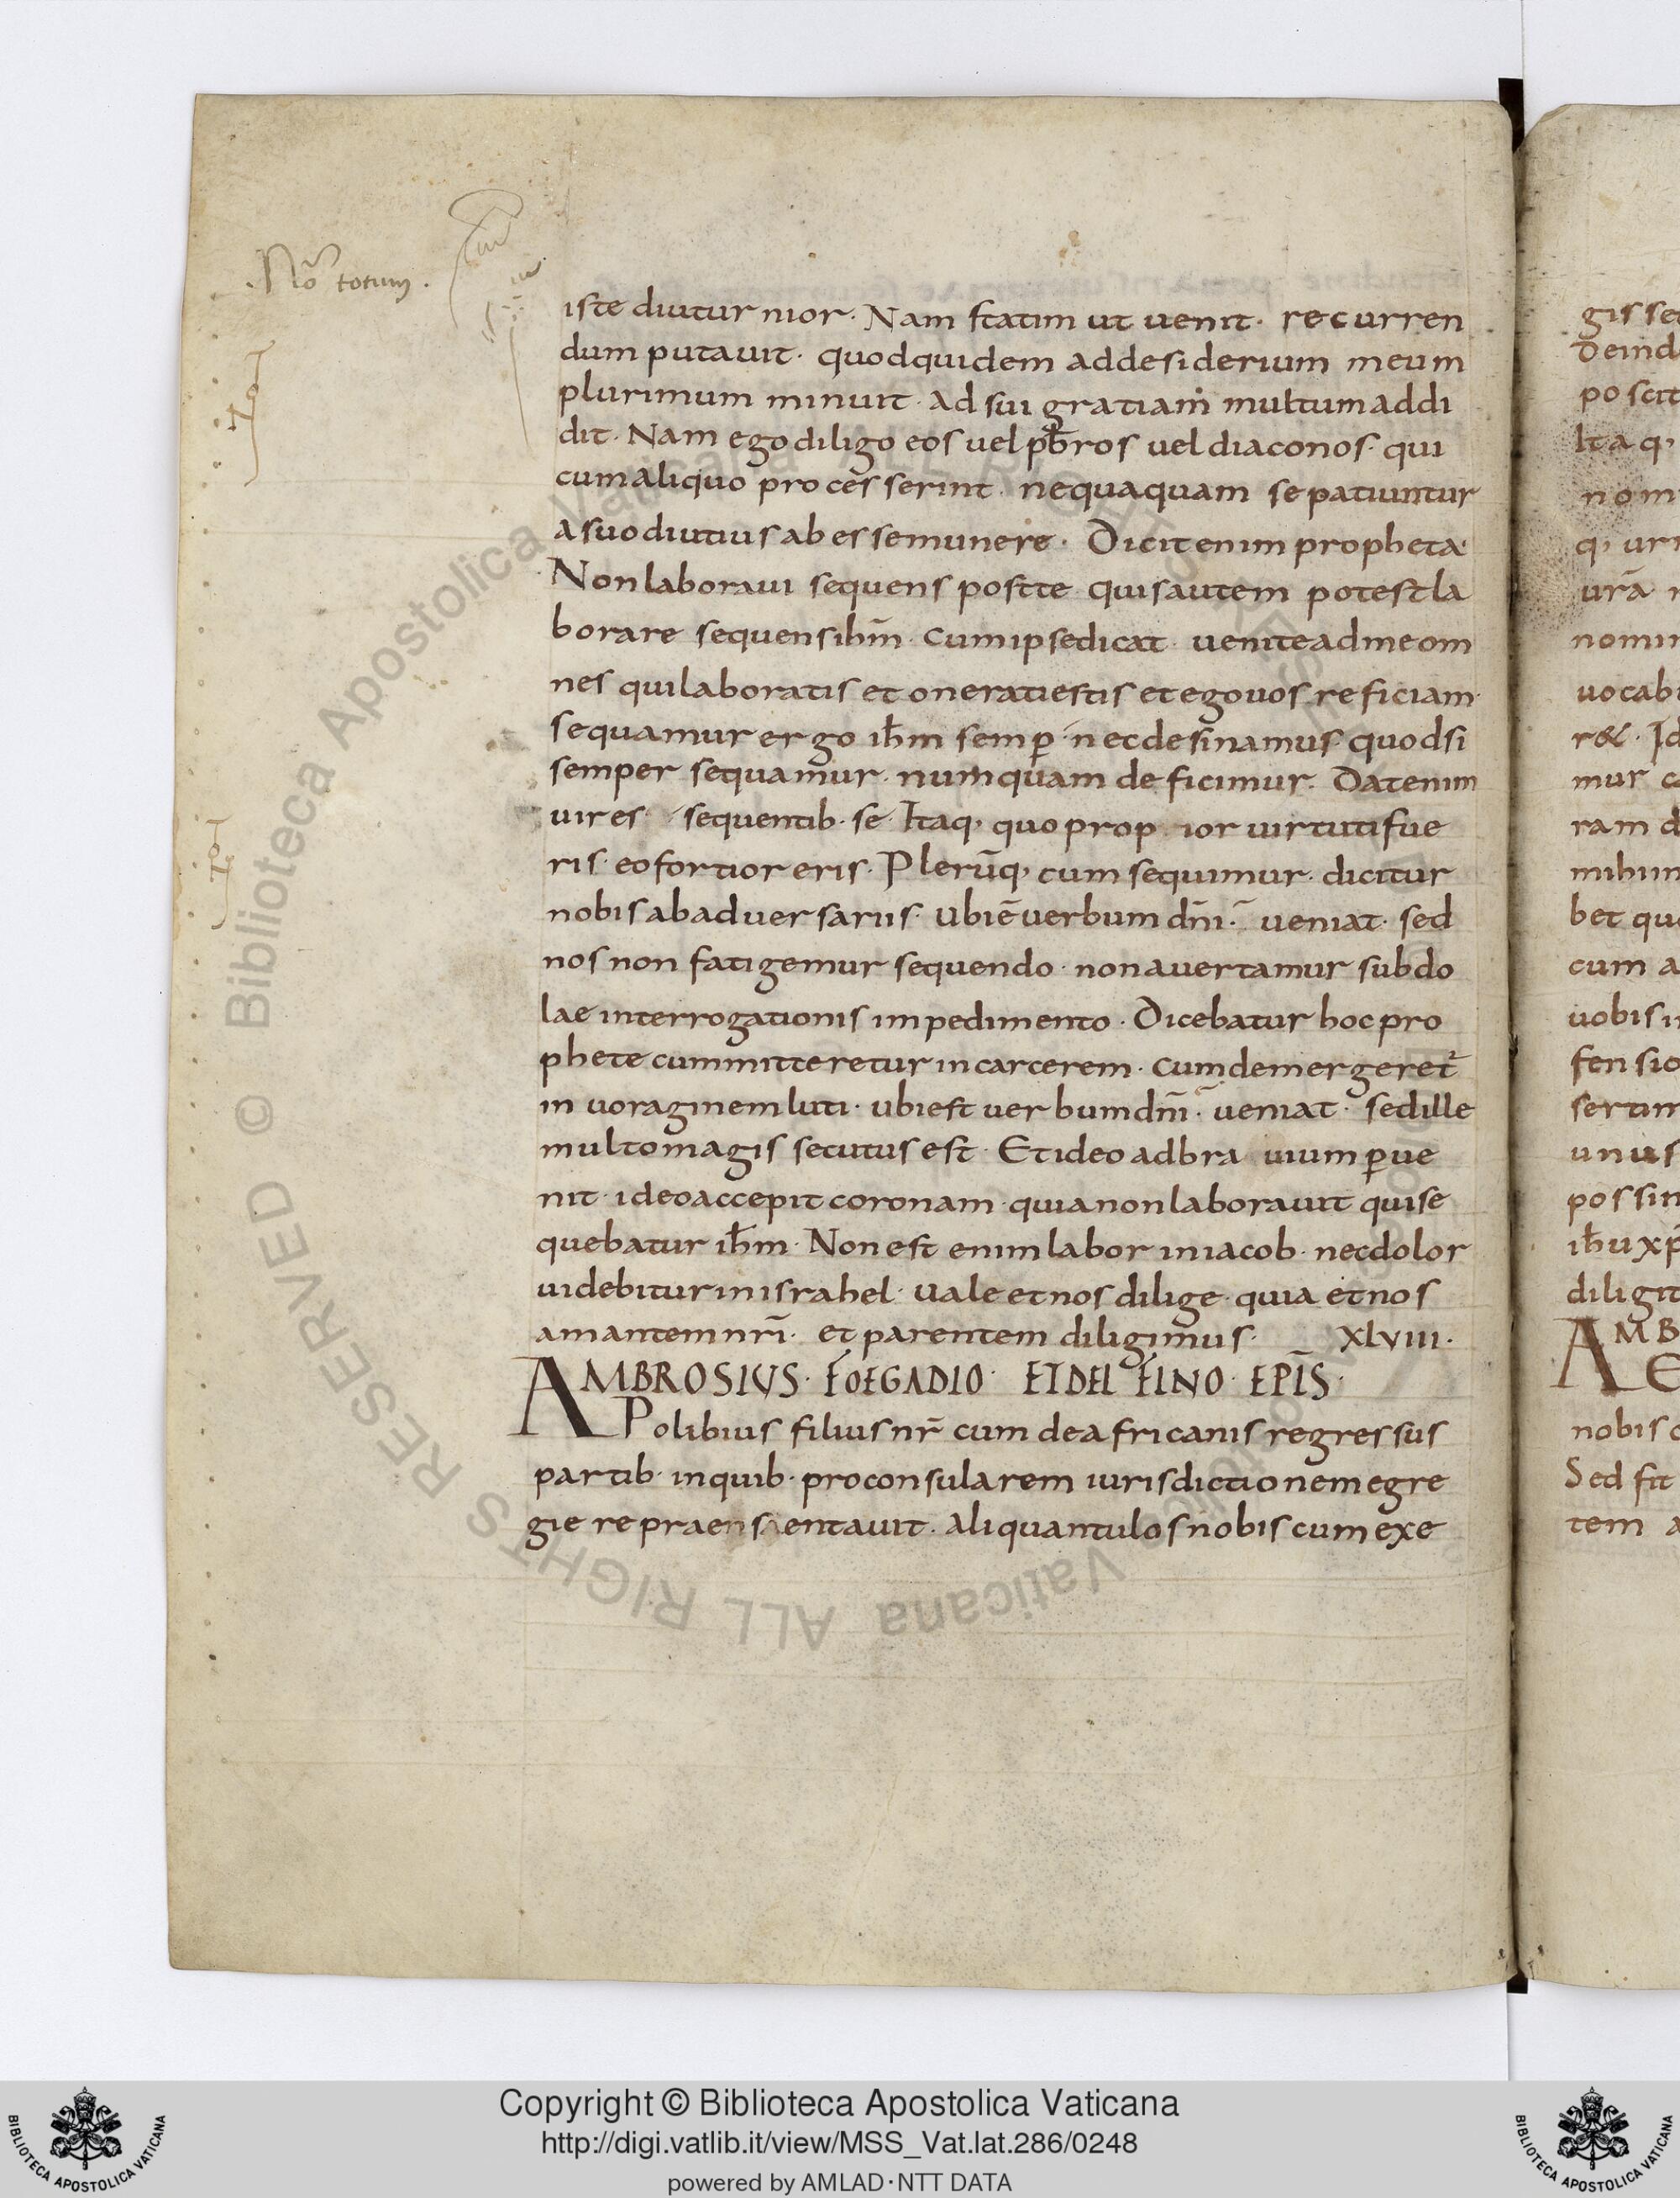 .Nõ totum.
iste diuturnior. Nam statim ut uenit. recurren
dum putauit. quod quidem ad desiderium meum
plurimum minuit. ad sui gratiam multum addi
dit. Nam ego diligo eos uel pb̅ros uel diaconos. qui
cum aliquo processerint. nequaquam se patiuntur
a suo diutius abesse munere. Dicit enim propheta.
Non laboraui sequens post te. quis autem potest la
borare sequens ihm̅. cum ipse dicat. uenite ad me om
nes qui laboratis et onerati estis et ego uos reficiam.
sequamur ergo ih̅m semꝑ. nec desinamus. quod si
semper sequamur. numquam deficimur. Dat enim
uires sequentib. se. Itaq, quo prop ior uirtuti fue
ris. eo fortior eris. Plerūq, cum sequimur. dicitur
nobis ab aduersariis. Ubi ē uerbum dm̅i. ueniat. sed
nos non fatigemur sequendo. non auertamur subdo
lae interrogationis impedimento. Dicebatur hoc pro
phete cum mitteretur in carcerem. cum demergeret᷑
in uoraginem luti. ubi est uerbum dm̅i. ueniat. sed ille
multo magis secutus est. Et ideo ad bra uium ꝑue
nit. ideo accepit coronam. quia non laborauit qui se
quebatur ih̅m. Non est enim labor in iacob. nec dolor
uidebitur in israhel. Uale et nos dilige. quia et nos
amantem nr̅i. et parentem diligimus. XLVIII.
AMBROSIUS. FOEGADIO. ET DELFINO. EPI̅S.
Polibius filius nr̅ cum de africanis regressus
partib. in quib. proconsularem iurisdictionem egre
gie repraensentauit. aliquantulos nobiscum exe
gis se
Deind
poscit
Itaq,
nom
q, ur
ur̅a
nomin
uocab
r&. Id
mur c
ram d
mihi in
bet qu
cum a
uobis i
fensio
sertim
unus
possin
ih̅u xp
diligit
AMB
E
nobis c
Sed fit
tem a
© Biblioteca Apostolica Vaticana ALL RIGHTS RESERVED
Copyright © Biblioteca Apostolica Vaticana
http://digi.vatlib.it/view/MSS_Vat.lat.286/0248
powered by AMLAD·NTT DATA
BIBLIOTECA APOSTOLICA VATICANA
BIBLIOTECA APOSTOLICA VATICANA